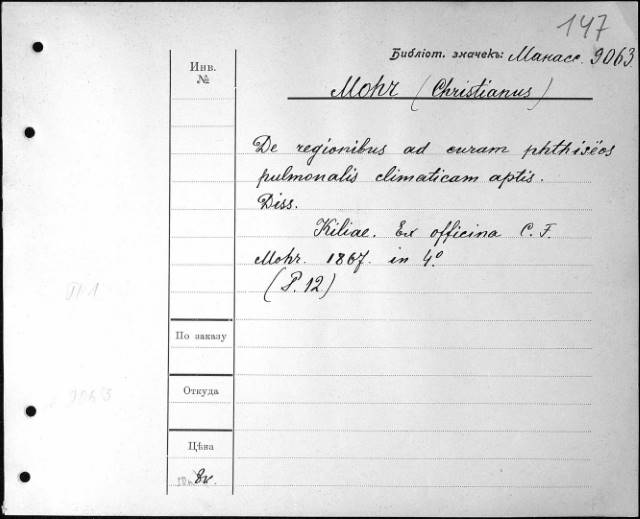 147
Библіот. значекъ: Манасс. 9063
Инв.
№
Mohr (Christianus)
De regionibus ad curam phthisëos
pulmonalis climaticam aptis.
Diss.
Kiliae. Ex officina C. F.
Mohr. 1867. in 4º.
(P. 12)
По заказу
Откуда
9063
Цѣна